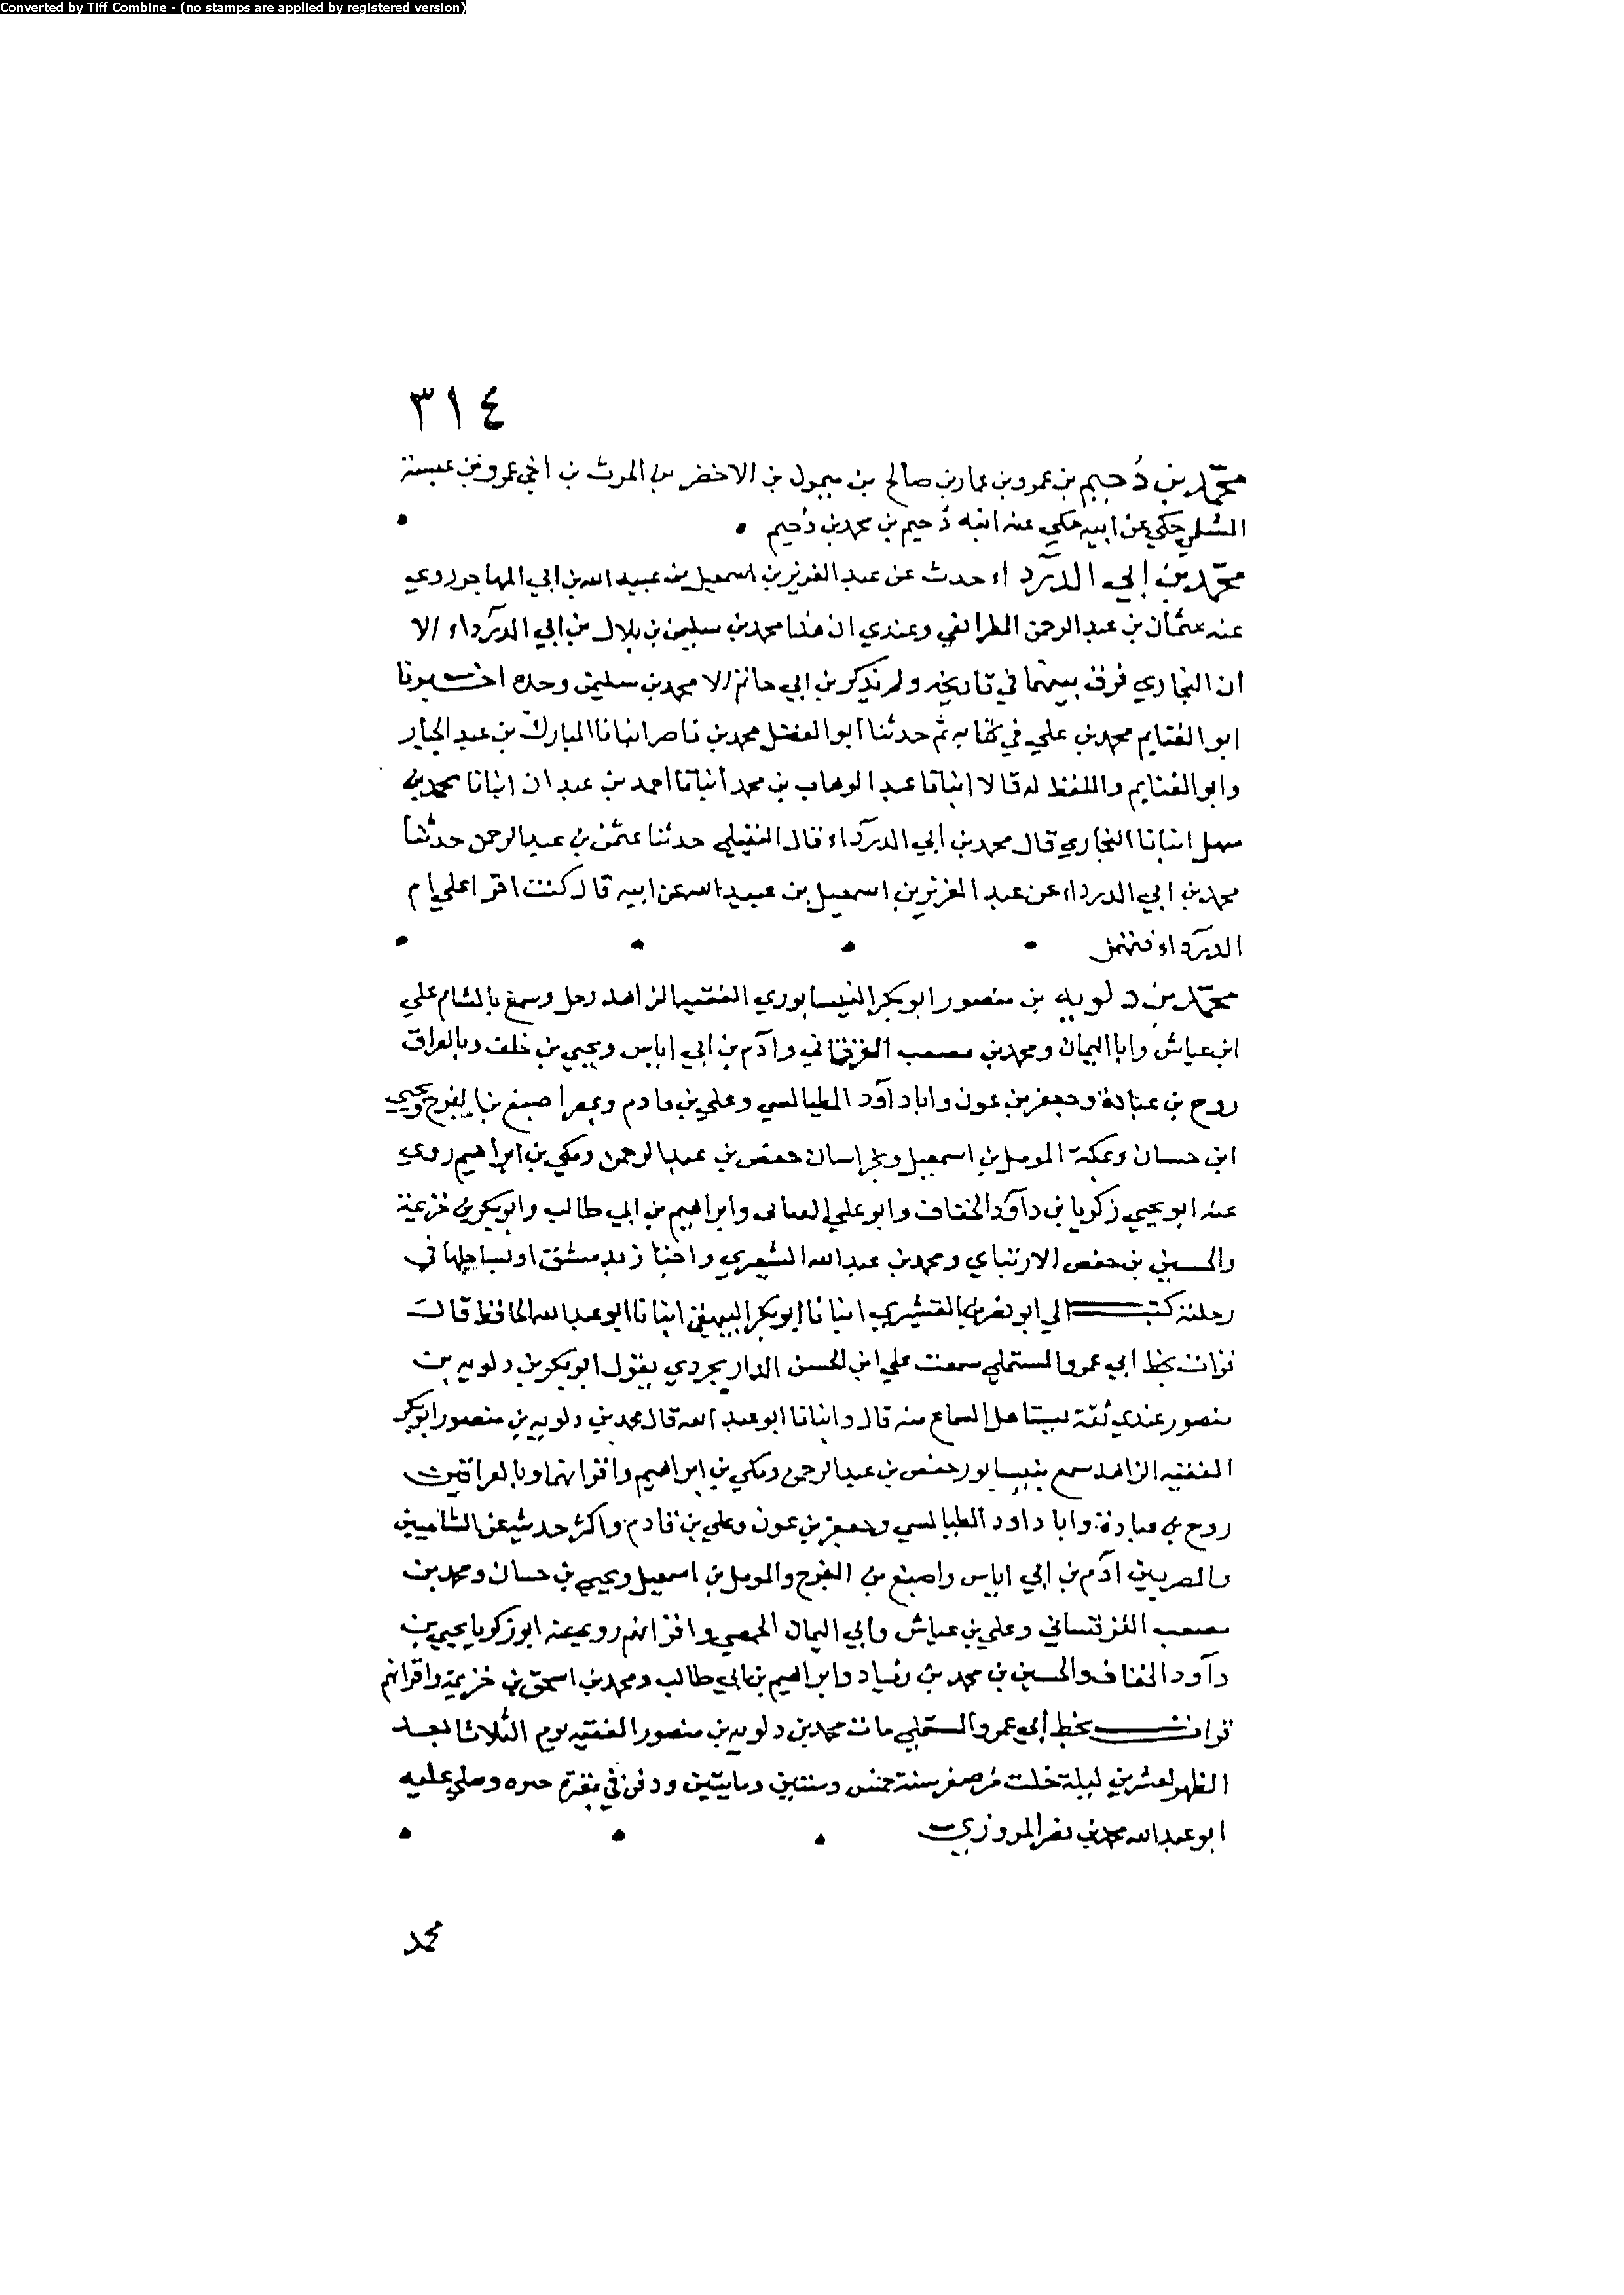 Converted by Tiff Combine - (no stamps are applied by registered version)
٣١٤
محمد بن دُحيم بن عمرو بن عمار بن صالح بن ميمول بن الاخضر بن الحرث بن اخي عمرو بن عبسة
السُلمي حكي عن ابيه حكي عنه ابنه دُحيم بن محمد بن دُحيم
محمد بن ابي الدرداء حدث عن عبد العزيز بن اسمعيل بن عبيد الله بن ابي المهاجر روي
عنه عثمان بن عبد الرحمن الطرائفي وعندي ان هذا محمد بن سليمن بن بلال بن ابي الدرداء الا
ان البخاري فرق بينهما في تاريخه ولم يذكر بن ابي حاتم الا محمد بن سليمن وحده اخبرنا
ابو الغنايم محمد بن علي في كتابه ثم حدثنا ابو الفضل محمد بن ناصر انبانا المبارك بن عبد الجبار
وابو الغنايم واللفظ له قالا انبانا عبد الوهاب بن محمد انبانا احمد بن عبدان انبانا محمد بن
سهل انبانا البخاري قال محمد بن ابي الدرداء قال النفيلي حدثنا عثمن بن عبد الرحمن حدثنا
محمد بن ابي الدرداء عن عبد العزيز بن اسمعيل بن عبيد الله عن ابيه قال كنت اقرا علي ام
الدرداء
محمد بن دلويه بن منصور ابو بكر النيسابوري الفقيه الزاهد رحل وسمع بالشام علي
ابن عياش وابا اليمان ومحمد بن مصعب القرقساني وآدم بن ابي اياس ويحيي بن خلف وبالعراق
روح بن عبادة وجعفر بن عون وابا داود الطيالسي وعلي بن قادم وبمصر اصبغ بن الفرج ويحيي
ابن حسان وبمكة المومل بن اسمعيل وبخراسان حفص بن عبد الرحمن ومكي بن ابراهيم روي
عنه ابو يحيي زكريا بن داود الخفاف وابو علي وابراهيم بن ابي طالب وابو بكر بن خزيمة
والحسين بن حفص ومحمد بن عبد الله الشعيري واجتاز بدمشق او بساحلها في
رحلته كتب الي ابو نصر بن القشيري انبانا ابو بكر البيهقي انبانا ابو عبد الله الحافظ قال
قرات بخط ابي عمرو المستملي سمعت علي ابن الحسن الدارابجردي يقول ابو بكر بن دلويه بن
منصور عندي ثقة يستاهل السماع منه قال وانبانا ابو عبد الله قال محمد بن دلويه بن منصور ابو بكر
الفقيه الزاهد سمع بنيسابور حفص بن عبد الرحمن ومكي بن ابراهيم واقرانهما وبالعراقين
روح بن عبادة وابا داود الطيالسي وجعفر بن عون وعلي بن قادم واكثر حديثه عن الشاميين
والمصريين آدم بن ابي اياس واصبغ بن الفرج والمومل بن اسمعيل ويحيي بن حسان ومحمد بن
مصعب القرقساني وعلي بن عياش وابي اليمان الحمصي واقرانهم روي عنه ابو زكريا يحيي بن
داود الخفاف والحسين بن محمد بن زياد وابراهيم بن ابي طالب ومحمد بن اسحق بن خزيمة واقرانهم
قرات بخط ابي عمرو المستملي مات محمد بن دلويه بن منصور الفقيه يوم الثلاثا بعد
الظهر لعشرين ليلة خلت من صفر سنة خمس وستين ومايتين ودفن في مقبرة وصلي عليه
ابو عبد الله محمد بن نصر المروزي
محمد